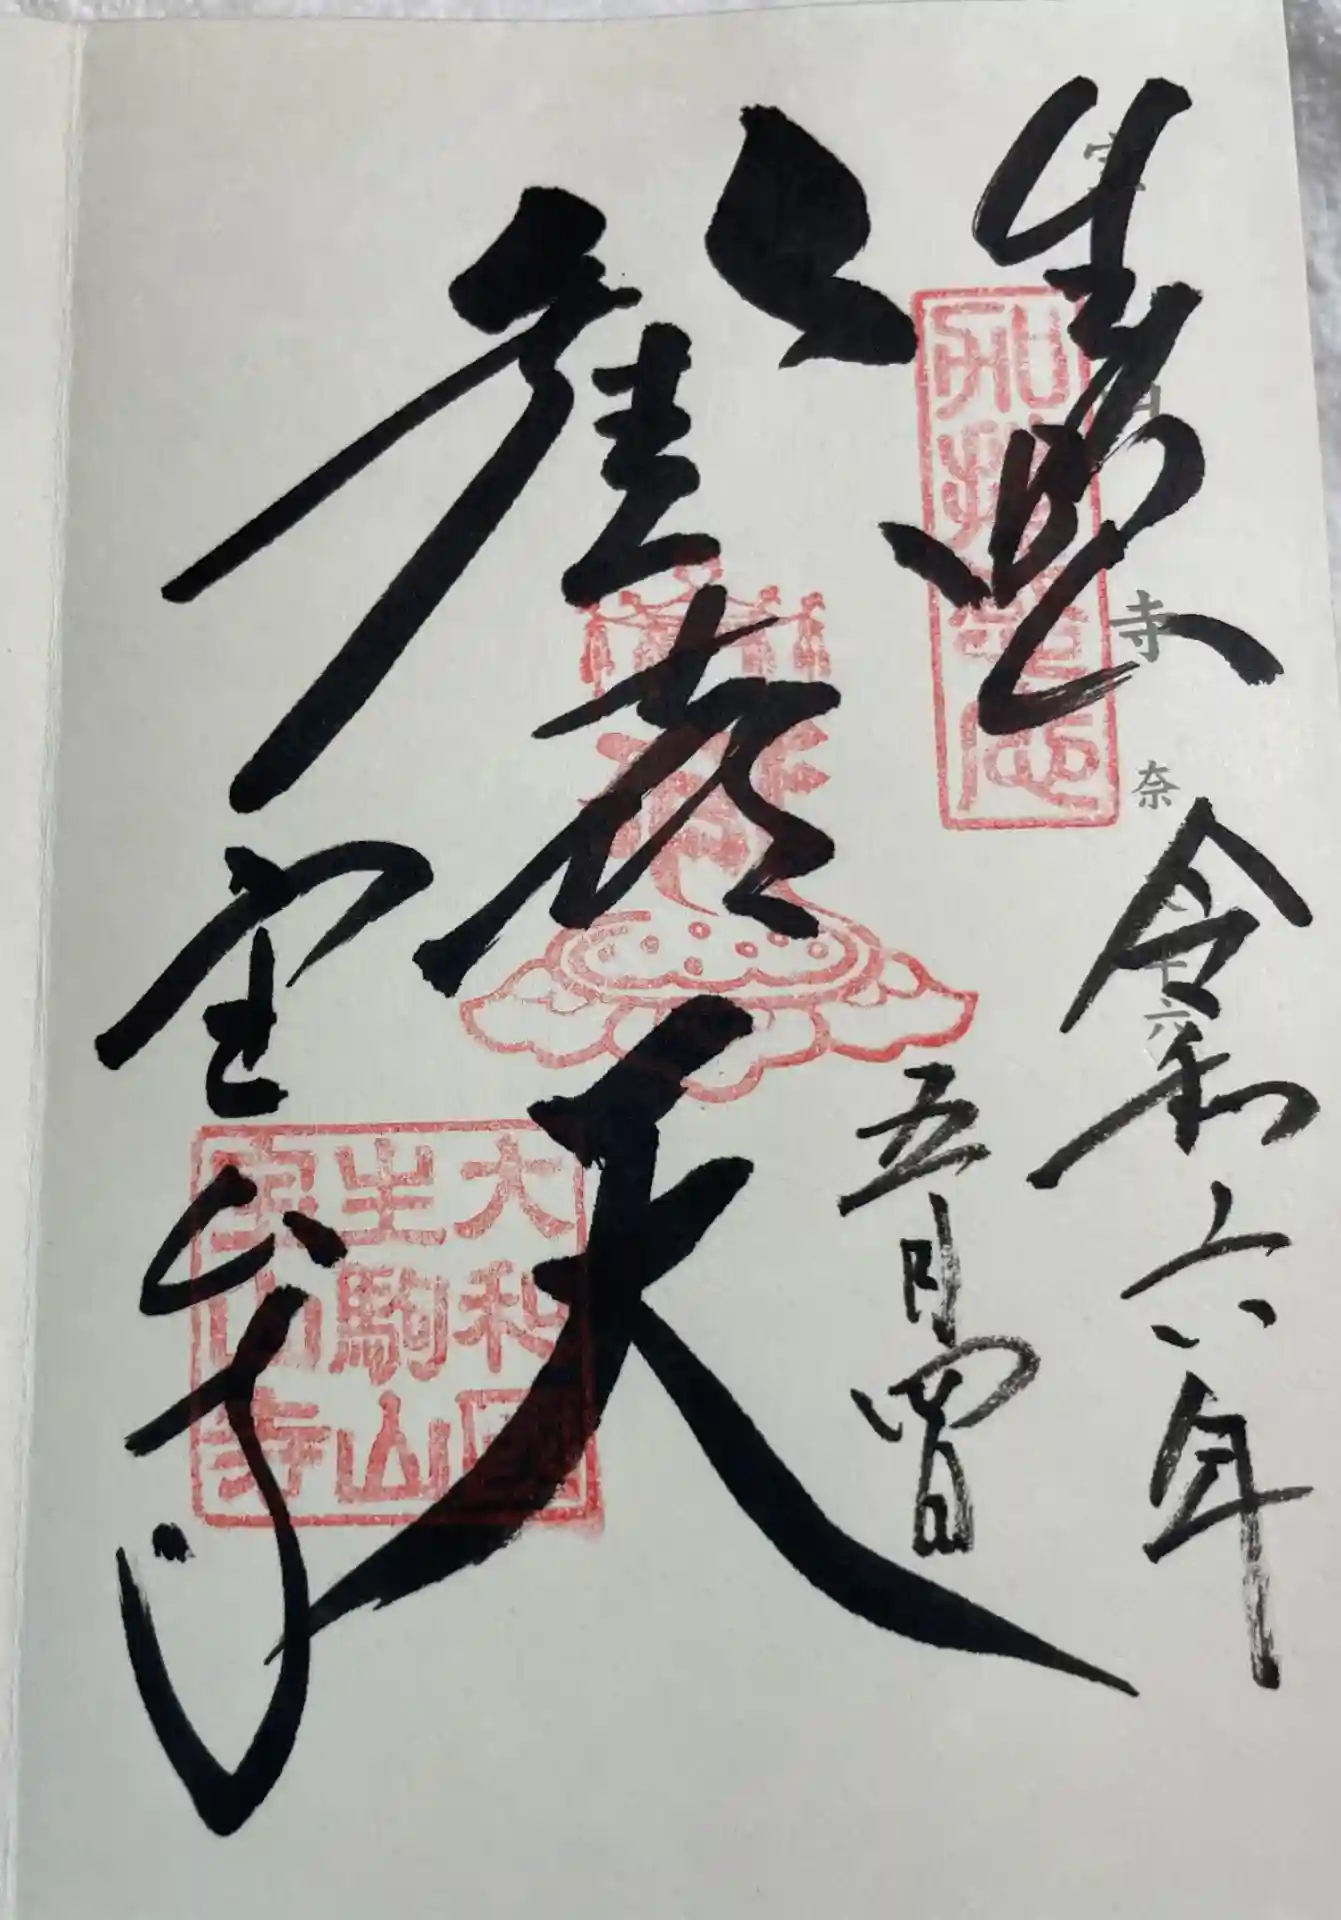 生駒
令和六年
五月四日
歓喜天
宝山寺
大和國
生駒山
宝山寺
寺 奈